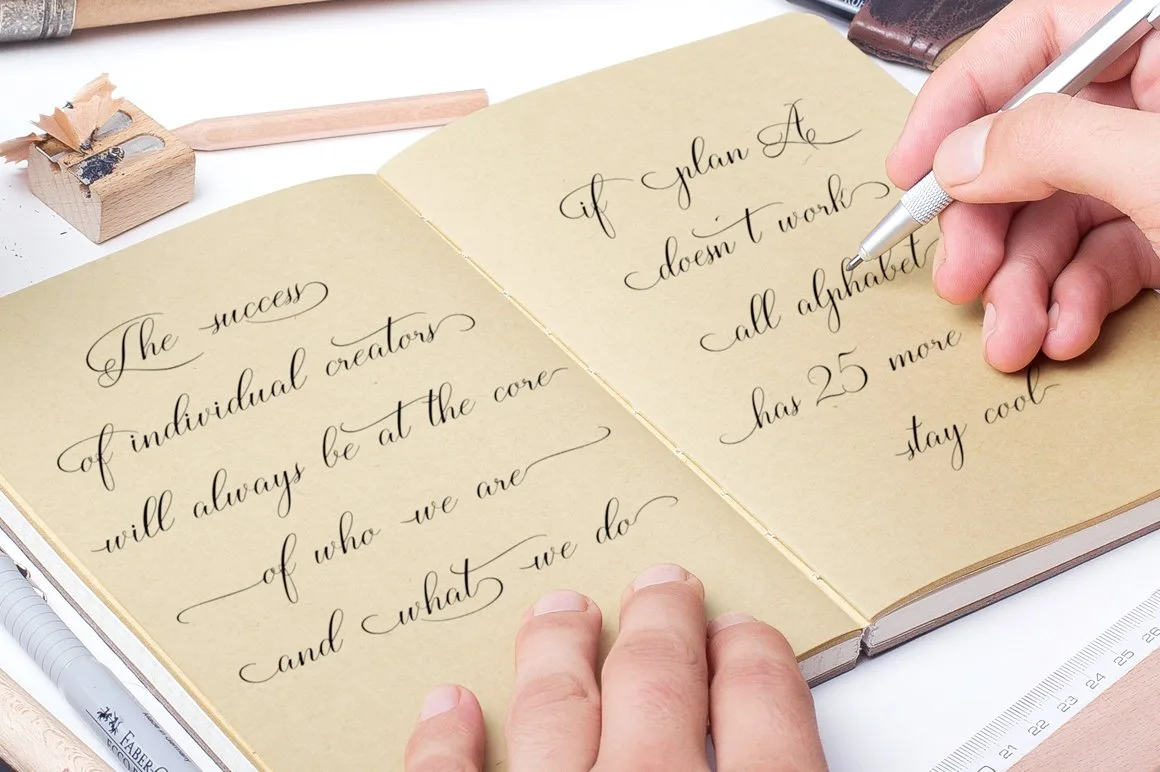 The success
of individual creators
will always be at the core
of who we are
and what we do
if plan A
doesn't work
all alphabet
has 25 more
stay cool
FABER-C
21 22 23 24 25 26